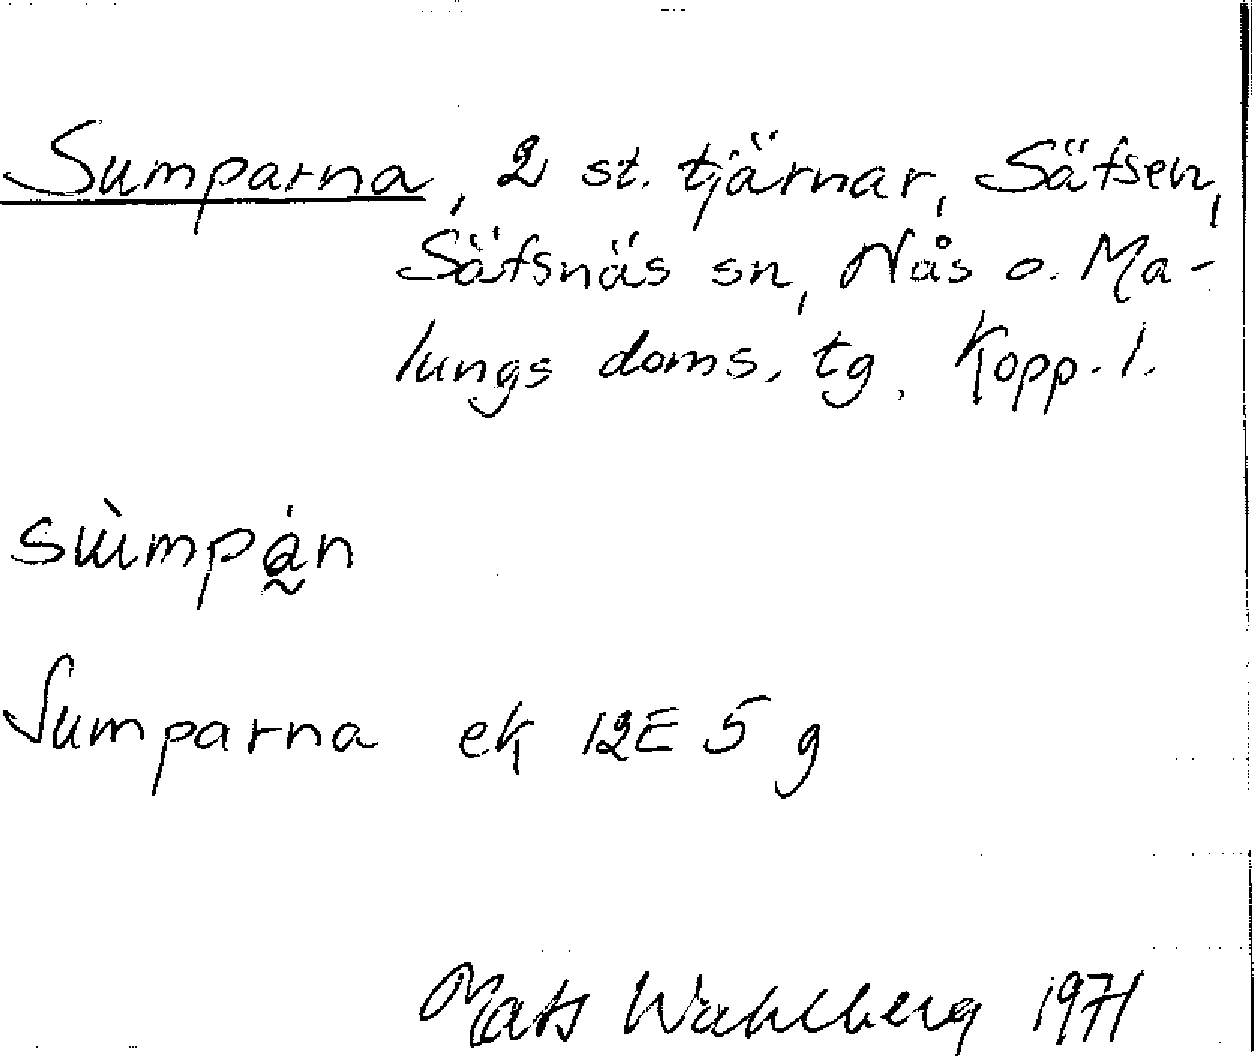 Sumparna, 2 st. tjärnar, Säfsen,
Säfsnäs sn, Nås o. Ma-
lungs doms. tg, Kopp. l.
sùmpá̰n
Sumparna ek 12E 5 g
Mats Wahlberg 1971